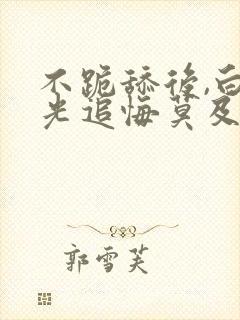 不跪舔后,白
光追悔莫及
郭雪芙